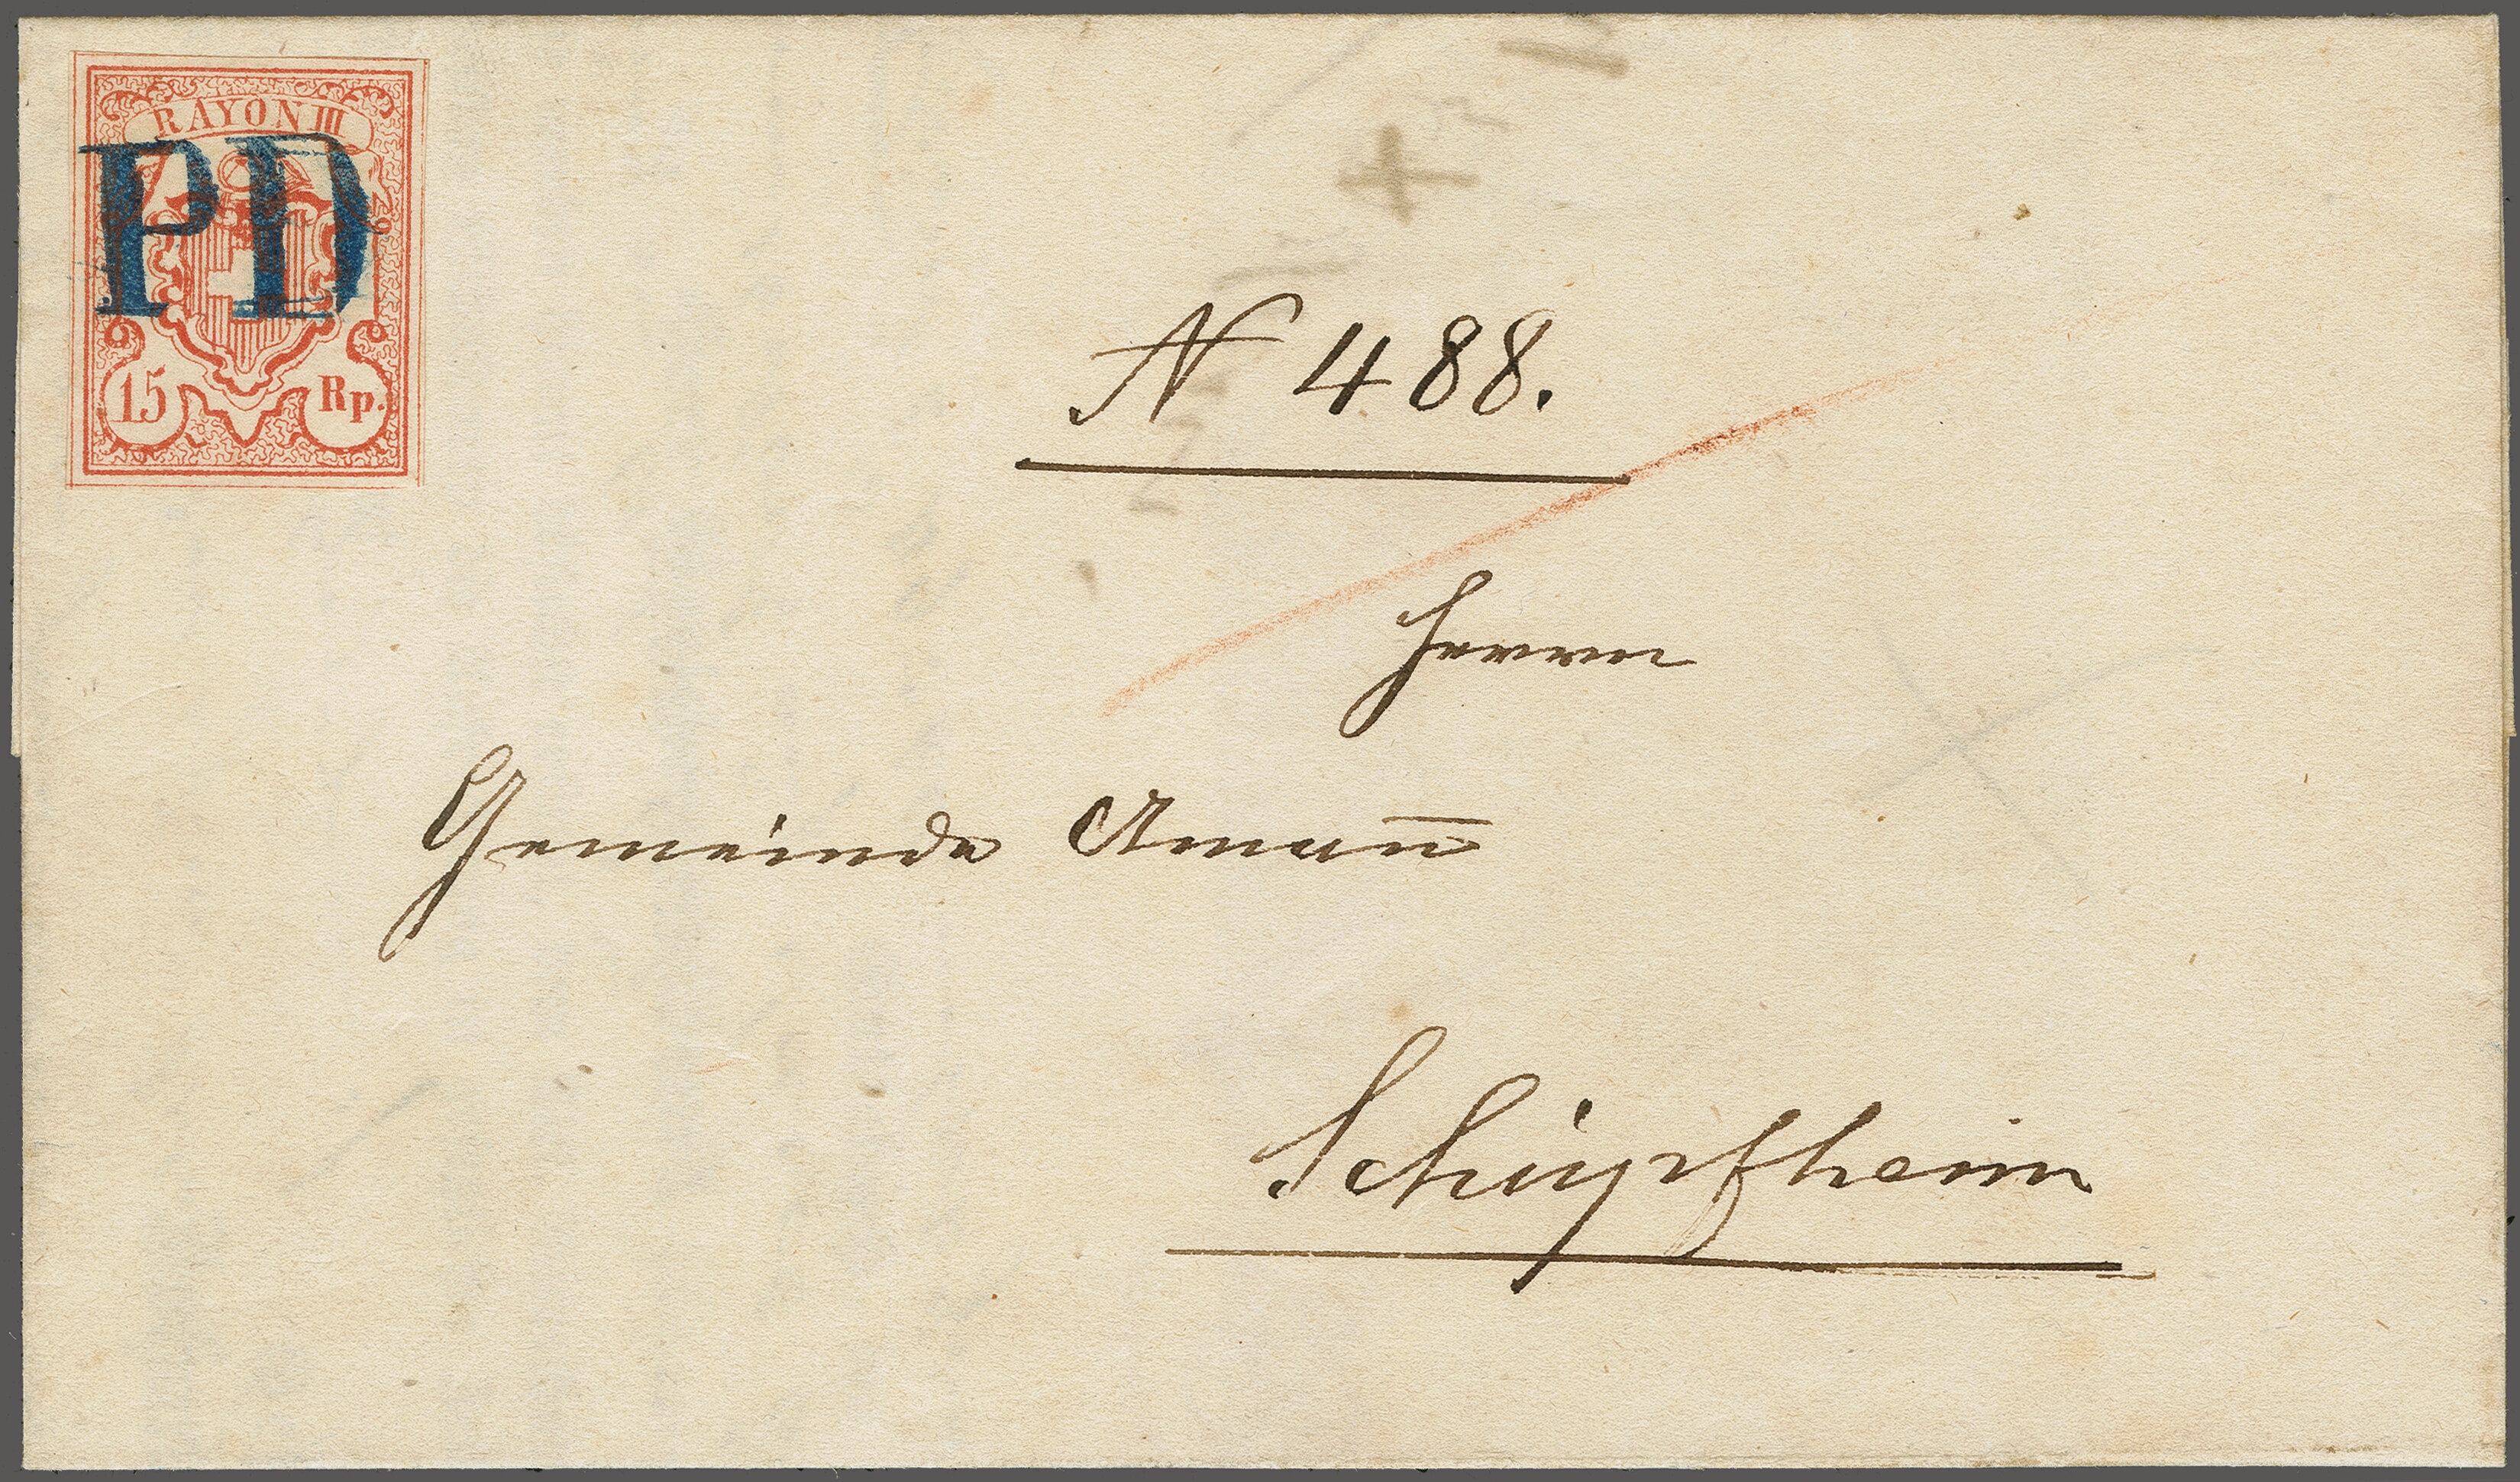 RAYON III
PD
15 Rp.
N 488.
Herrn
Gemeinde Aman̅
Schüpfheim